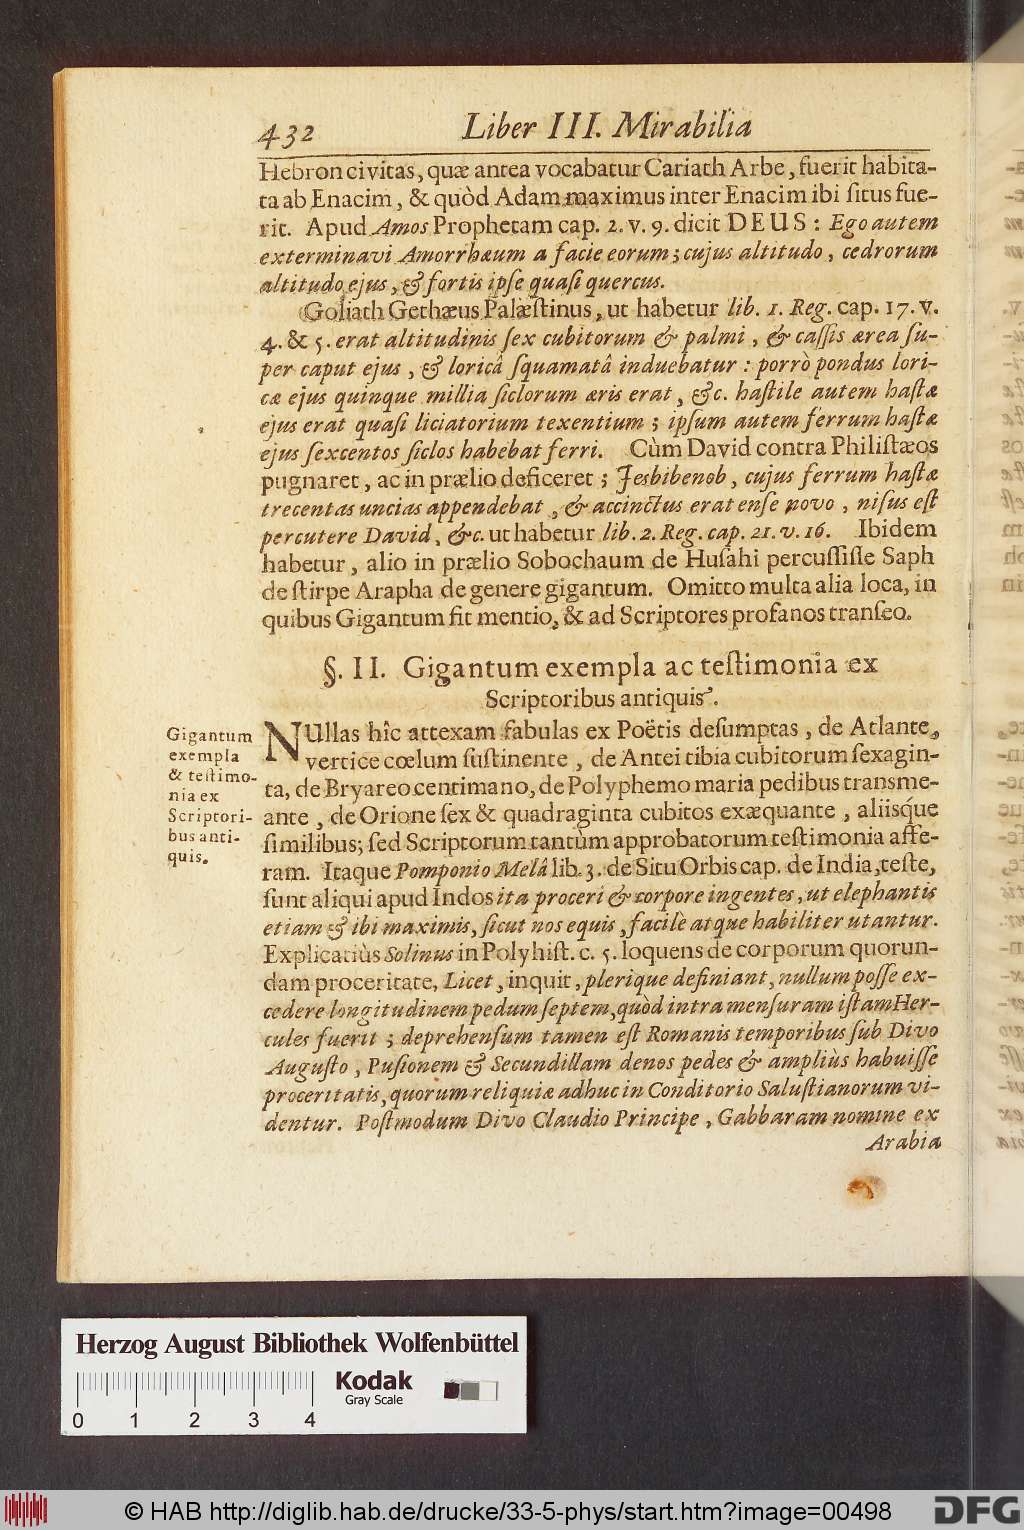 432 Liber III. Mirabilia
Hebron civitas, quæ antea vocabatur Cariath Arbe, fuerit habita-
ta ab Enacim, & quòd Adam maximus inter Enacim ibi ſitus fue-
rit. Apud Amos Prophetam cap. 2. v. 9. dicit DEUS: Ego autem
exterminavi Amorrhæum a facie eorum; cujus altitudo, cedrorum
altitudo ejus, & fortis ipſe quaſi quercus.
Goliath Gethæus Palæſtinus, ut habetur lib. 1. Reg. cap. 17. v.
4. & 5. erat altitudinis ſex cubitorum & palmi, & caſſis ærea ſu-
per caput ejus, & loricâ ſquamatâ induebatur: porrò pondus lori-
cæ ejus quinque millia ſiclorum æris erat, &c. haſtile autem haſtæ
ejus erat quaſi liciatorium texentium; ipſum autem ferrum haſtæ
ejus ſexcentos ſiclos habebat ferri. Cùm David contra Philiſtæos
pugnaret, ac in prælio deficeret; Jesbibenob, cujus ferrum haſtæ
trecentas uncias appendebat, & accinctus erat enſe novo, niſus eſt
percutere David, &c. ut habetur lib. 2. Reg. cap. 21. v. 16. Ibidem
habetur, alio in prælio Sobochaum de Huſahi percuſſiſſe Saph
de ſtirpe Arapha de genere gigantum. Omitto multa alia loca, in
quibus Gigantum fit mentio, & ad Scriptores profanos tranſeo.
§. II. Gigantum exempla ac teſtimonia ex
Scriptoribus antiquis.
Gigantum
exempla
& teſtimo-
nia ex
Scriptori-
bus anti-
quis.
NUllas hîc attexam fabulas ex Poëtis deſumptas, de Atlante,
vertice cœlum ſuſtinente, de Antei tibia cubitorum ſexagin-
ta, de Bryareo centimano, de Polyphemo maria pedibus transme-
ante, de Orione ſex & quadraginta cubitos exæquante, aliisque
ſimilibus; ſed Scriptorum tantùm approbatorum teſtimonia affe-
ram. Itaque Pomponio Melâ lib. 3. de Situ Orbis cap. de India, teſte,
ſunt aliqui apud Indos ita proceri & corpore ingentes, ut elephantis
etiam & ibi maximis, ſicut nos equis, facilè atque habiliter utantur.
Explicatiùs Solinus in Polyhiſt. c. 5. loquens de corporum quorun-
dam proceritate, Licet, inquit, plerique definiant, nullum poſſe ex-
cedere longitudinem pedum ſeptem, quòd intra menſuram iſtam Her-
cules fuerit; deprehenſum tamen eſt Romanis temporibus ſub Divo
Auguſto, Puſionem & Secundillam denos pedes & ampliùs habuiſſe
proceritatis, quorum reliquiæ adhuc in Conditorio Saluſtianorum vi-
dentur. Poſtmodum Divo Claudio Principe, Gabbaram nomine ex
Arabia
Herzog August Bibliothek Wolfenbüttel
Kodak
Gray Scale
0 1 2 3 4
© HAB http://diglib.hab.de/drucke/33-5-phys/start.htm?image=00498
DFG